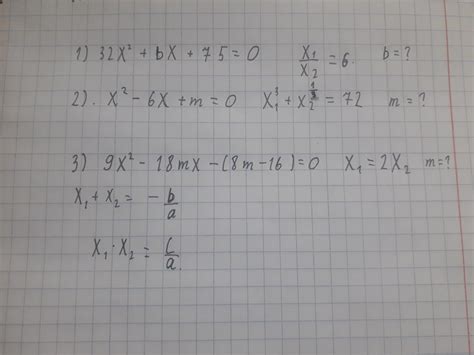 1) 32x² + bx + 75 = 0 x₁/x₂ = 6. b = ?
2). x² - 6x + m = 0 x₁³ + x₂³ = 72 m = ?
3) 9x² - 18mx - (8m - 16) = 0 x₁ = 2x₂ m = ?
x₁ + x₂ = - b/a
x₁ · x₂ = c/a.